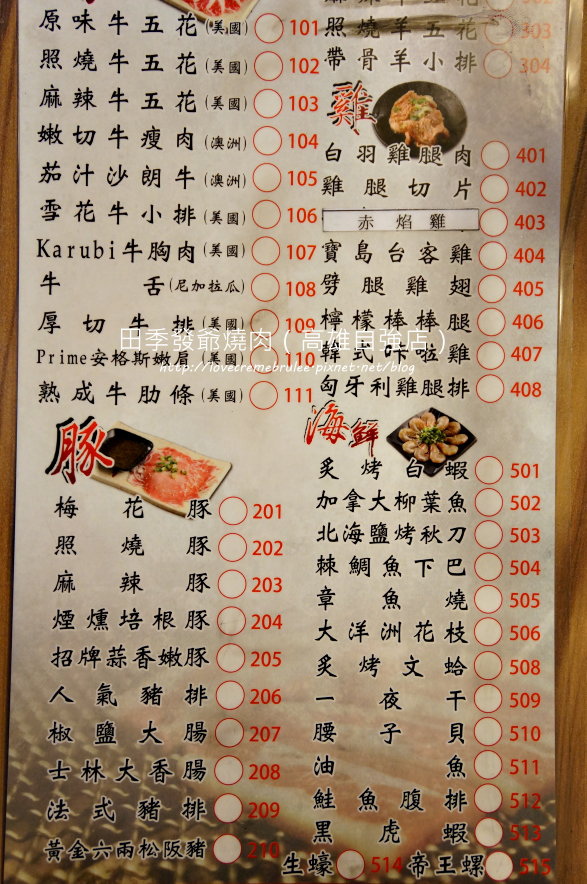 原味牛五花(美國) 101
照燒牛五花(美國) 102
麻辣牛五花(美國) 103
嫩切牛瘦肉(澳洲) 104
茄汁沙朗牛(澳洲) 105
雪花牛小排(美國) 106
Karubi牛胸肉(美國) 107
牛舌(尼加拉瓜) 108
厚切牛排(美國) 109
Prime安格斯嫩肩(美國) 110
熟成牛肋條(美國) 111
豚
梅花豚 201
照燒豚 202
麻辣豚 203
煙燻培根豚 204
招牌蒜香嫩豚 205
人氣豬排 206
椒鹽大腸 207
士林大香腸 208
法式豬排 209
黃金六兩松阪豬 210
照燒羊五花 303
帶骨羊小排 304
雞
白羽雞腿肉 401
雞腿切片 402
赤焰雞 403
寶島台客雞 404
劈腿雞翅 405
檸檬棒棒腿 406
韓式咔啦雞 407
匈牙利雞腿排 408
海鮮
炙烤白蝦 501
加拿大柳葉魚 502
北海鹽烤秋刀 503
棘鯛魚下巴 504
章魚燒 505
大洋洲花枝 506
炙烤文蛤 508
一夜干 509
腰子貝 510
油魚 511
鮭魚腹排 512
黑虎蝦 513
生蠔 514 帝王螺 515
田季發爺燒肉(高雄自強店)
http://lovecremebrulee.pixnet.net/blog